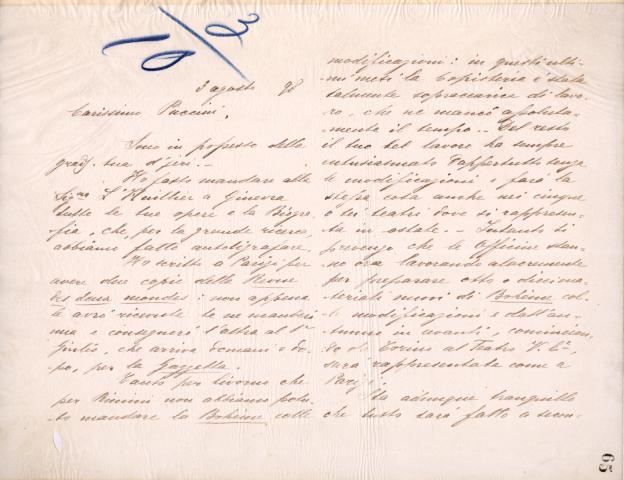 10/3
3 agosto 98
Carissimo Puccini,
Sono in possesso della
grad. tua d'jeri. —
Ho fatto mandare alla
Sig.na L'Huillier a Ginevra
tutte le tue opere e la Biogra-
fia, che, per la grande ricerca,
abbiamo fatto autografare.
Ho scritto a Parigi per
avere due copie della Revue
des deux mondes: non appena
le avrò ricevute te ne manderò
una e consegnerò l'altra al Sr
Giulio, che arriva domani o do-
po, per la Gazzetta.
Tanto per Livorno che
per Rimini non abbiamo potu-
to mandare la Bohème colle
modificazioni: in questi ulti-
mi mesi la Copisteria è stata
talmente sopracarica di lavo-
ro, che ne mancò assoluta-
mente il tempo. — Del resto
il tuo bel lavoro ha sempre
entusiasmato dappertutto senza
le modificazioni e farà la
stessa cosa anche nei cinque
o sei teatri dove si rappresen-
ta in estate. — Intanto ti
prevengo che le Officine stan-
no ora lavorando alacremente
per preparare otto o dieci ma-
teriali nuovi di Bohème col-
le modificazioni e dall'au-
tunno in avanti, comincian-
do da Torino al Teatro V. E.,
sarà rappresentata come a
Parigi.
Sta adunque tranquillo
che tutto sarà fatto a secon-
65